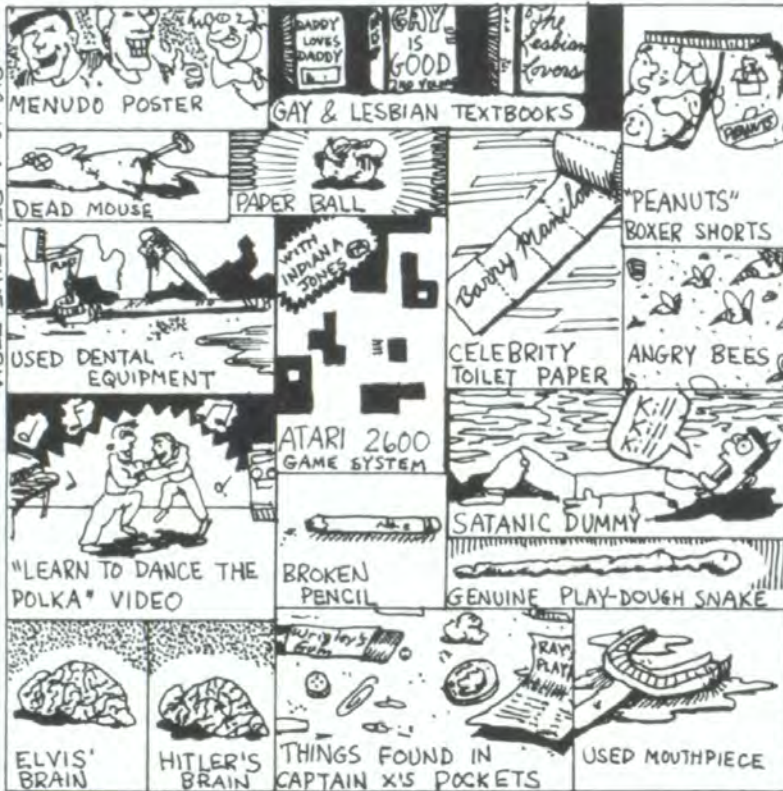 MENUDO POSTER
DADDY
LOVES
DADDY
GAY
IS
GOOD
The
Lesbian
Lovers
GAY & LESBIAN TEXTBOOKS
PEANUTS
"PEANUTS"
BOXER SHORTS
DEAD MOUSE
PAPER BALL
Barry Manilow
CELEBRITY
TOILET PAPER
USED DENTAL
EQUIPMENT
WITH
INDIANA
JONES
ATARI 2600
GAME SYSTEM
ANGRY BEES
"LEARN TO DANCE THE
POLKA" VIDEO
BROKEN
PENCIL
Kill
Kill
Kill
SATANIC DUMMY
GENUINE PLAY-DOUGH SNAKE
ELVIS'
BRAIN
HITLER'S
BRAIN
Wrigley's
Gum
RAY'S
PLAY
THINGS FOUND IN
CAPTAIN X'S POCKETS
USED MOUTHPIECE